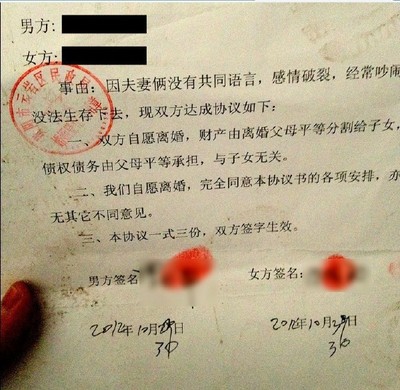 男方:
女方:
事由:因夫妻俩没有共同语言,感情破裂,经常吵闹
没法生存下去,现双方达成协议如下:
一、双方自愿离婚,财产由离婚父母平等分割给子女,
债权债务由父母平等承担,与子女无关。
二、我们自愿离婚,完全同意本协议书的各项安排,亦
无其它不同意见。
三、本协议一式三份,双方签字生效。
男方签名 女方签名:
2012年10月 日 2012年10月 日
30 30